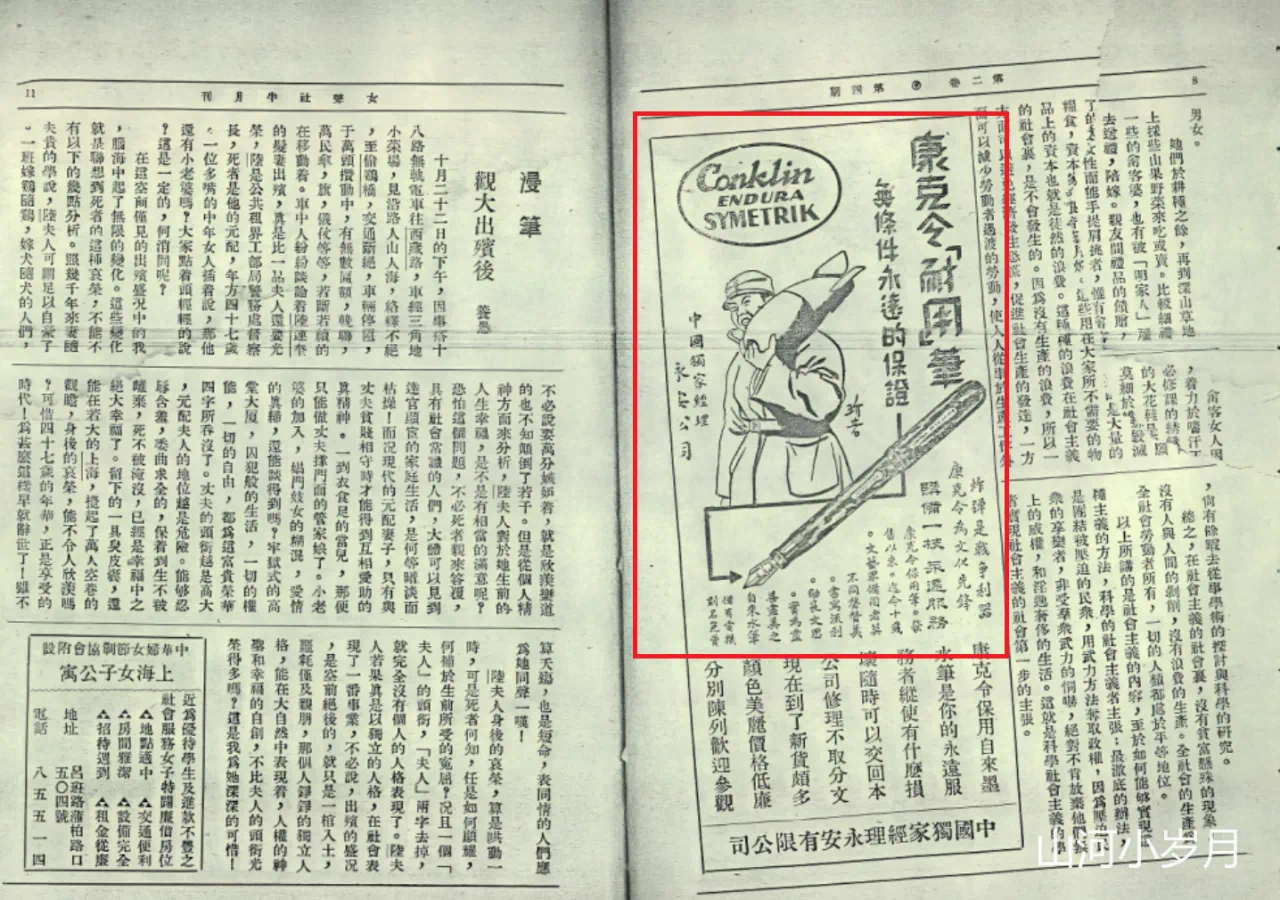 8
第二卷 第四期
男女。
她們於耕種之餘，再到深山草地
上採些山果野菜來吃或賣。比較錯禮
一些的畲客婆，也有被「明家人」
康克令「耐固」筆
無條件永遠的保證
Conklin
ENDURA
SYMETRIK
中國獨家經理
永安公司
炸彈是戰爭利器
康克令為文化先鋒
購備一枝永遠服務
康克令保用自來墨
水筆是你的永遠服
務者縱使有什麽損
壞隨時可以交回本
公司修理不取分文
現在到了新貨頗多
顏色美麗價格低廉
分別陳列歡迎參觀
中國獨家經理永安有限公司
，尚有餘暇去從事學術的探討與科學的研究。
總之，在社會主義的社會裏，沒有貧富懸殊的現象
沒有人與人間的剝削，沒有浪費的生產。全社會的生產
全社會勞動者所有，一切的人類都處於平等地位。
以上所講的是社會主義的內容，至於如何能够實現
種主義的方法，科學的社會主義者主張：最澈底的辦法，
是團結被壓迫的民衆，用武力方法奪取政權，因為壓迫
衆的享樂者，非受羣衆武力的恫嚇，絕對不肯放棄他們
上的威權，和淫逸奢侈的生活。這就是科學社會主義的學
者實現社會主義的社會第一步的主張。
山河小岁月
11
女聲社半月刊
漫筆
觀大出殯後
十月二十二日的下午，因事搭十
八路無軌電車往西歲路，車經三角地
小菜場，見沿路人山人海，絡繹不絕
，至偷鷄橋，交通斷絕，車輛停阻，
于萬頭攢動中，有無數匾額，輓聯，
萬民傘，旗，儀仗等等，若斷若續的
在移動着。車中人紛紛談論着陸連奎
的髮妻出殯，眞是比一品夫人還要光
榮，陸是公共租界工部局警務處督察
長，死者是他的元配，年方四十七歲
。一位多嘴的中年女人插着說，那他
還有小老婆嗎？大家點着頭輕輕的說
？這是一定的，何消問呢？
在這空前僅見的出殯盛況中的我
，腦海中起了無限的變化。這些變化
就是聯想到死者的這種哀榮，不能不
有以下的幾點分析。照幾千年來妻隨
夫貴的學說，陸夫人可謂足以自豪了
。一班嫁鷄隨鷄，嫁犬隨犬的人們，
不必說要萬分嫉妬着，就是欣羨樂道
的也不知顛倒了若干。但是從個人精
神方面來分析，陸夫人對於她生前的
人生幸福，是不是有相當的滿意呢？
恐怕這個問題，不必死者親來答覆，
具有社會常識的人們，大體可以見到
達官顯宦的家庭生活，是何等暗淡而
枯燥！而況現代的元配妻子，只有與
丈夫貧賤相守時才能得到互相愛助的
眞精神。一到衣食足的當兒，那便
只能做丈夫撑門面的管家娘了。小老
婆的加入，娼門妓女的糊混，愛情
的眞諦，還能談得到嗎？牢獄式的高
堂大廈，囚犯般的生活，一切的權
能，一切的自由，都為這富貴榮華
四字所吞沒了。丈夫的頭銜越是高大
，元配夫人的地位越是危險。能够忍
辱含羞，委曲求全的，保着到生不被
離棄，死不被淹沒，已經是幸福中之
絕大幸福了。留下的一具臭皮囊，還
能在若大的上海，攪起了萬人空巷的
觀瞻，身後的哀榮，能不令人欣羨嗎
？可惜四十七歲的年華，正是享受的
時代！為甚麽這樣早就辭世了！雖不
算夭殤，也是短命，表同情的人們應
為她同聲一嘆！
陸夫人身後的哀榮，算是哄動一
時，可是死者何知，任是如何顯耀，
何補於生前所受的寃屈？况且一個「
夫人」的頭銜，「夫人」兩字去掉，
就完全沒有個人的人格表現了。陸夫
人若果眞是以獨立的人格，在社會表
現了一番事業，不必說，出殯的盛況
，是空前絕後的，就只是一棺入土，
噩耗僅及親朋，那個人錚錚的獨立人
格，能在大自然中表現着，人權的神
聖和幸福的自創，不比夫人的頭銜光
榮得多嗎？這是我為她深深的可惜！
中華婦女節制協會附設
上海女子公寓
近為優待學生及進款不豐之
社會服務女子特闢廉價房位
地點適中 交通便利
房間雅潔 設備完全
招待週到 租金從廉
地址 呂班路蒲柏路口
五〇四號
電話 八五五一四